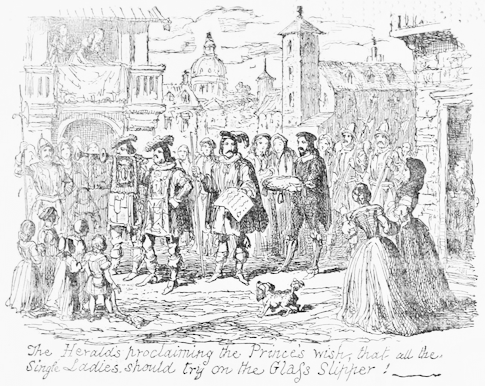 The Heralds proclaiming the Princes wish, that all the
Single Ladies should try on the Glaſs Slipper !